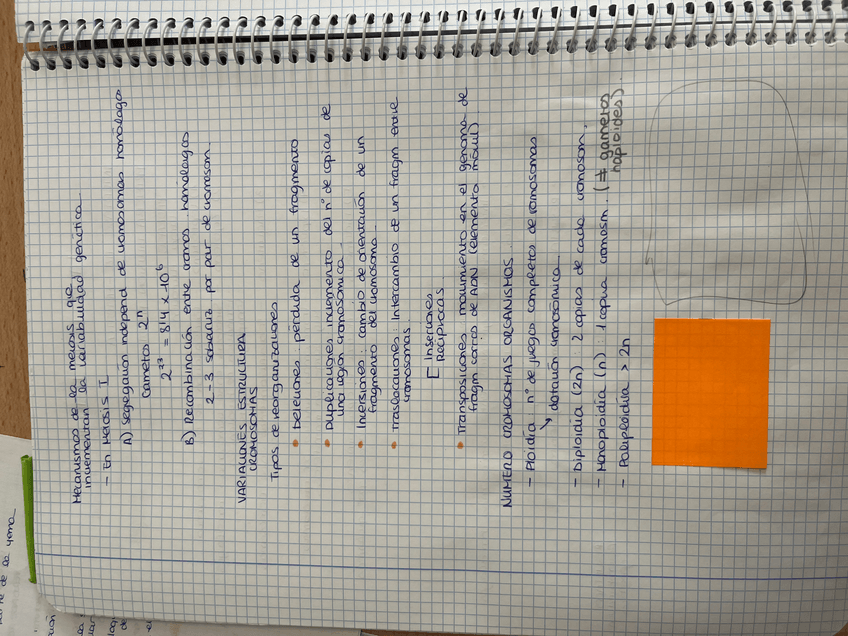 Mecanismos de la meiosis que
incrementan la variabilidad genética
- En Meiosis I
A) Segregación independ de cromosomas homólogos
Gametos 2ⁿ
2²³ = 8'4 x 10⁶
B) Recombinación entre cromos homólogos
2-3 sobrecruz por par de cromosom.
VARIACIONES ESTRUCTURA
CROMOSOMAS
Tipos de reorganizaciones
• Deleciones pérdida de un fragmento
• Duplicaciones incremento del nº de copias de
una región cromosómica
• Inversiones: cambio de orientación de un
fragmento del cromosoma.
• Traslocaciones: Intercambio de un fragm entre
cromosomas.
[ Inserciones
Recíprocas
• Transposiciones movimiento en el genoma de
fragm cortos de ADN (elemento móvil)
NÚMERO CROMOSOMAS ORGANISMOS
- Ploidía nº de juegos completos de cromosomas
↘ dotación cromosómica
- Diploidía (2n) 2 copias de cada cromosom.
- Monoploidía (n) : 1 copia cromosm. (≠ gametos
haploides).
- Poliploidía > 2n